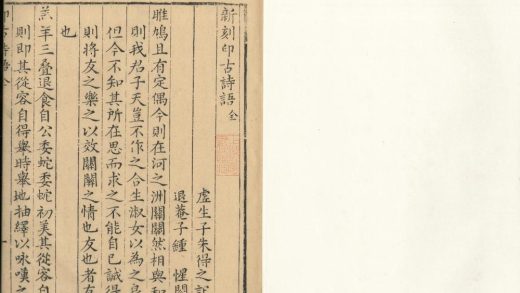 新刻印古詩語 全
虛生子朱得之
退菴子鍾 惺閱
雎鳩且有定偶今則在河之洲關關然相與和
則我君子天豈不作之合生淑女以為之良
但今不知其所在思而求之不能自已誠得
則將友之樂之以效關關之情也友也者友
也
羔羊三叠退食自公委蛇委蛇初美其從容自
則即其從容自得舉時舉地抽繹以咏嘆之
印古詩語 全